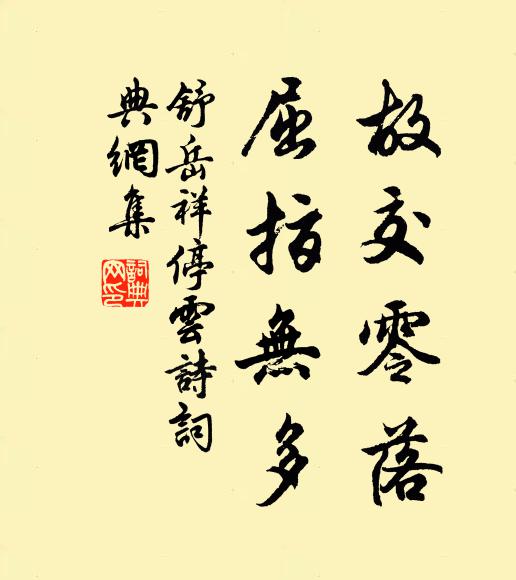 故交零落
屈指無多
舒岳祥停雲詩詞
典網集
詞典
网印